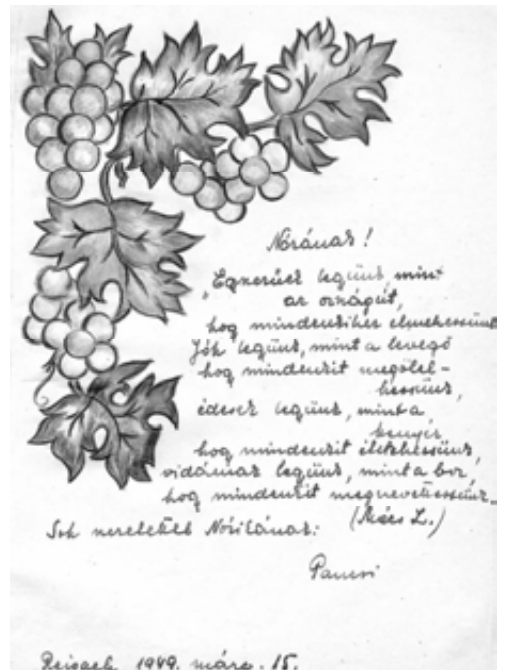 Nórának!
"Egyszerűek legyünk, mint
az országút,
hogy mindenkihez elmehessünk
Jók legyünk, mint a levegő
hogy mindenkit megölel-
hessünk,
édesek legyünk, mint a
kenyér
hogy mindenkit éltethessünk,
vidámak legyünk, mint a bor,
hogy mindenkit megnevettessünk."
(Mécs L.)
Sok szeretettel Nórikának:
Pancsi
1949. márc. 15.